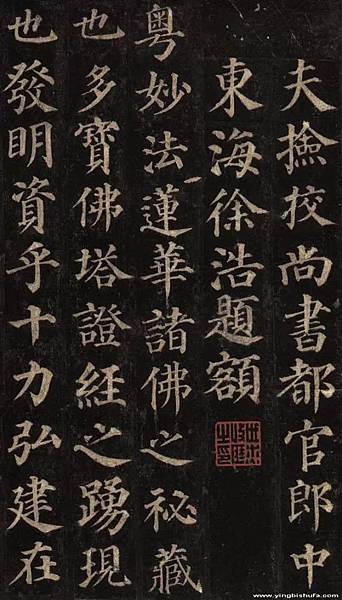 夫撿校尚書都官郎中
東海徐浩題額
粵妙法蓮華諸佛之祕藏
也多寶佛塔證経之踴現
也發明資乎十力弘建在
www.yingbishufa.com